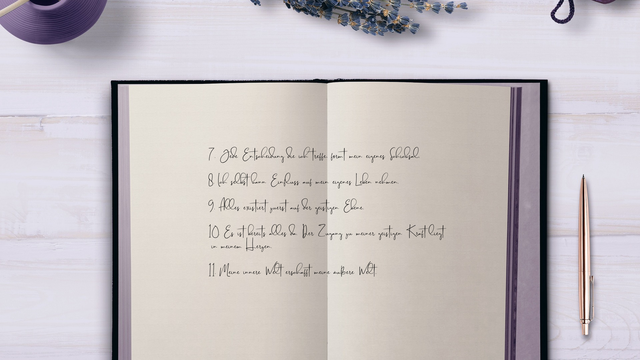 7 Jede Entscheidung die ich treffe, formt mein eigenes Schicksal.
8 Ich selbst kann Einfluss auf mein eigenes Leben nehmen.
9 Alles existiert zuerst auf der geistigen Ebene.
10 Es ist bereits alles da. Der Zugang zu meiner geistigen Kraft liegt
in meinem Herzen.
11 Meine innere Welt erschafft meine äußere Welt.